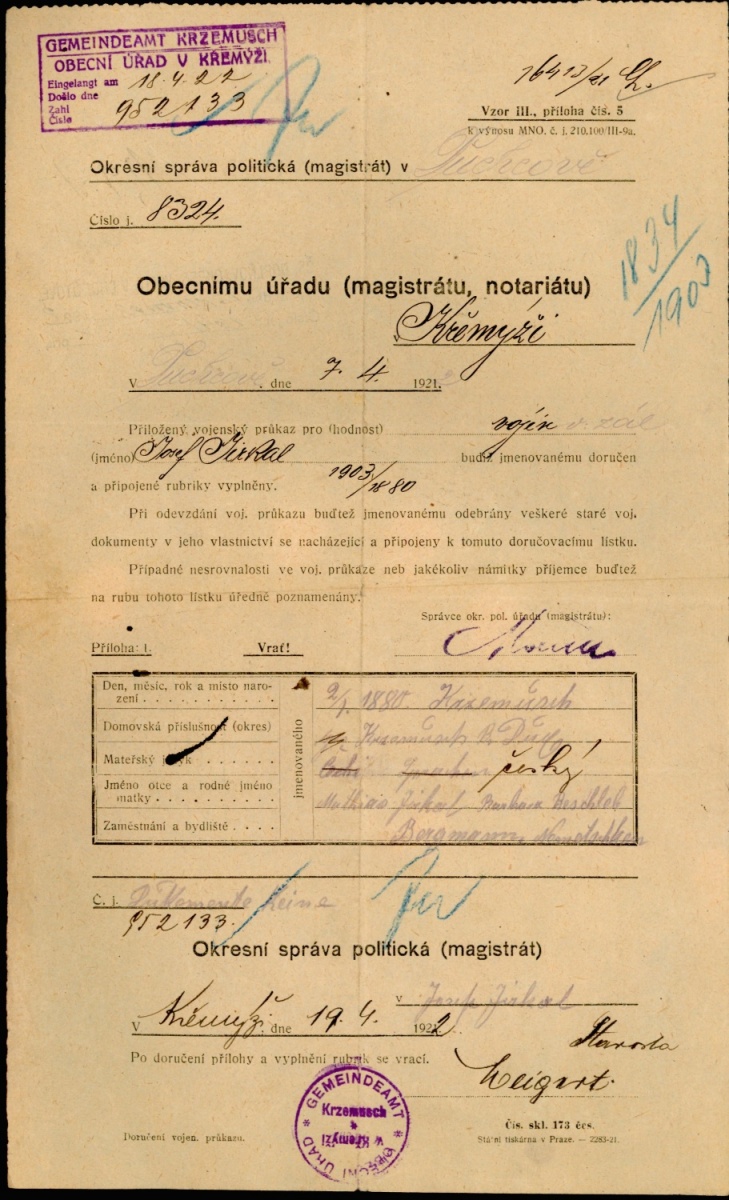 GEMEINDEAMT KRZEMUSCH
OBECNÍ ÚŘAD V KŘEMÝŽI.
Eingelangt am
Došlo dne 18.4.22
Zahl
Číslo 952133
16413/21
Vzor III., příloha čís. 5
k výnosu MNO. č. j. 210.100/III-9a.
Okresní správa politická (magistrát) v Duchcově
Číslo j. 8324.
1834/1903
Obecnímu úřadu (magistrátu, notariátu)
v Křemýži
V Duchcově, dne 7. 4. 1921.
Přiložený vojenský průkaz pro (hodnost) vojín v zál
(jméno) Josef Jirkal budiž jmenovanému doručen
a připojené rubriky vyplněny. 1903/1880
Při odevzdání voj. průkazu buďtež jmenovanému odebrány veškeré staré voj.
dokumenty v jeho vlastnictví se nacházející a připojeny k tomuto doručovacímu lístku.
Případné nesrovnalosti ve voj. průkaze neb jakékoliv námitky příjemce buďtež
na rubu tohoto lístku úředně poznamenány.
Správce okr. pol. úřadu (magistrátu):
Příloha: 1. Vrať!
jmenovaného
Den, měsíc, rok a místo narození 2/1. 1880. Krzemusch
Domovská příslušnost (okres) Krzemusch B Dux
Mateřský jazyk český
Jméno otce a rodné jméno matky Mathias Jirkal Barbara
Zaměstnání a bydliště Bergmann,
Č. j. Dukemente keine
952133.
Okresní správa politická (magistrát)
v Josef Jirkal
V Křemýži dne 19. 4. 1922
Starosta
Po doručení přílohy a vyplnění rubrik se vrací.
Weigert.
GEMEINDEAMT
Krzemusch
v Křemýži
OBECNÍ ÚŘAD
Čís. skl. 173 čes.
Doručení vojen. průkazu. Státní tiskárna v Praze. — 2283-21.